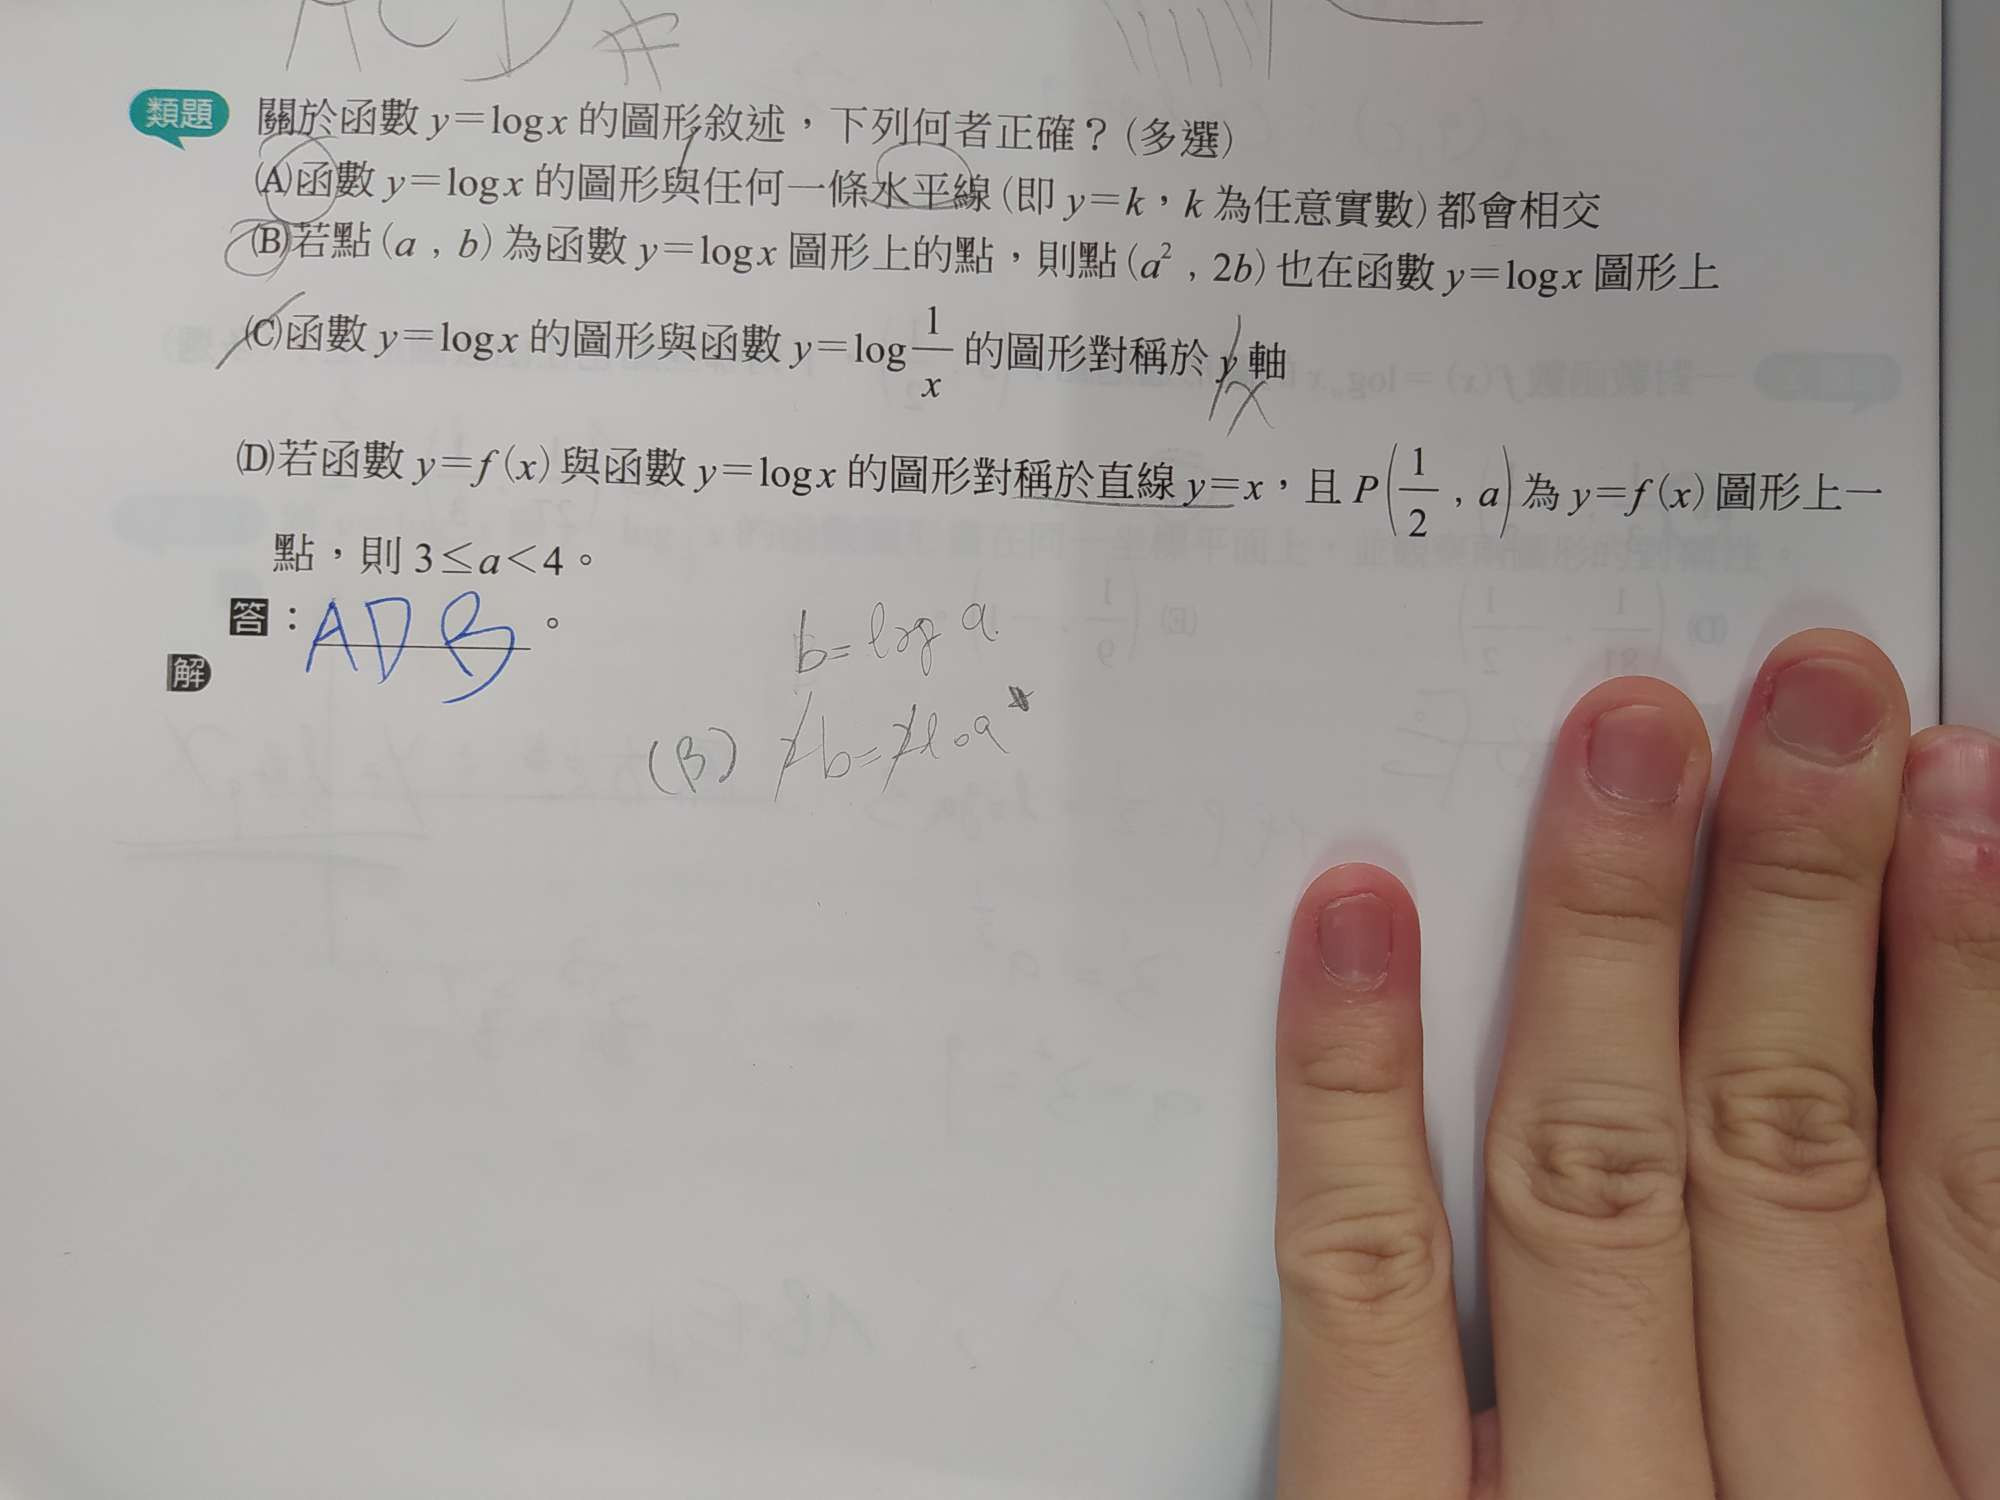 ACD
類題 關於函數 y=logx 的圖形敘述，下列何者正確？(多選)
(A)函數 y=logx 的圖形與任何一條水平線(即 y=k，k 為任意實數)都會相交
(B)若點(a , b)為函數 y=logx 圖形上的點，則點(a² , 2b)也在函數 y=logx 圖形上
(C)函數 y=logx 的圖形與函數 y=log 1/x 的圖形對稱於 y 軸
x
(D)若函數 y=f(x)與函數 y=logx 的圖形對稱於直線 y=x，且 P(1/2 , a)為 y=f(x)圖形上一
點，則 3≤a<4。
答：ADB。
b=log a
解
(B) 2b=2loa